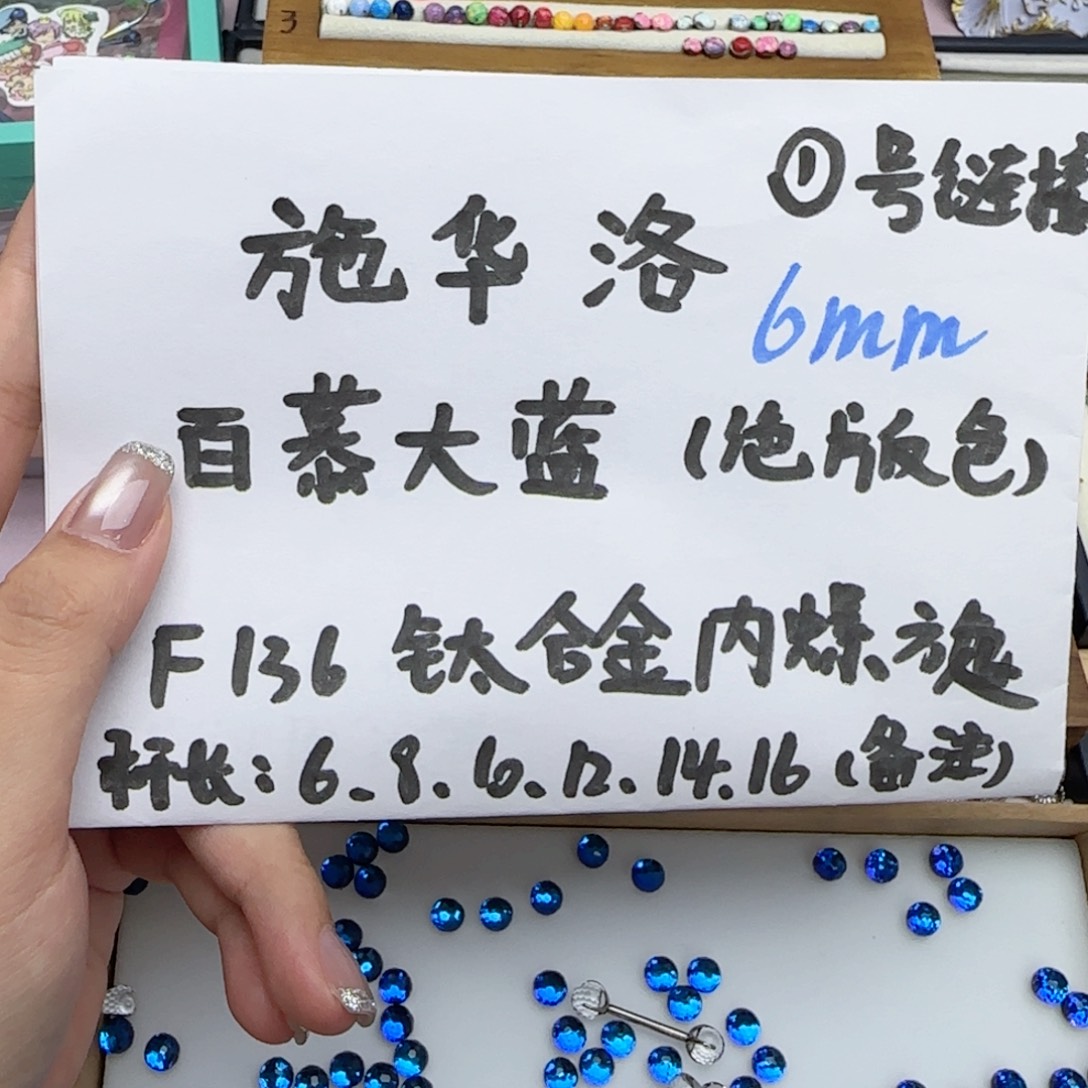 3
①号链接
施华洛
6mm
百慕大蓝（绝版色）
F136 钛合金内螺旋
杆长：6.8.10.12.14.16（备注）